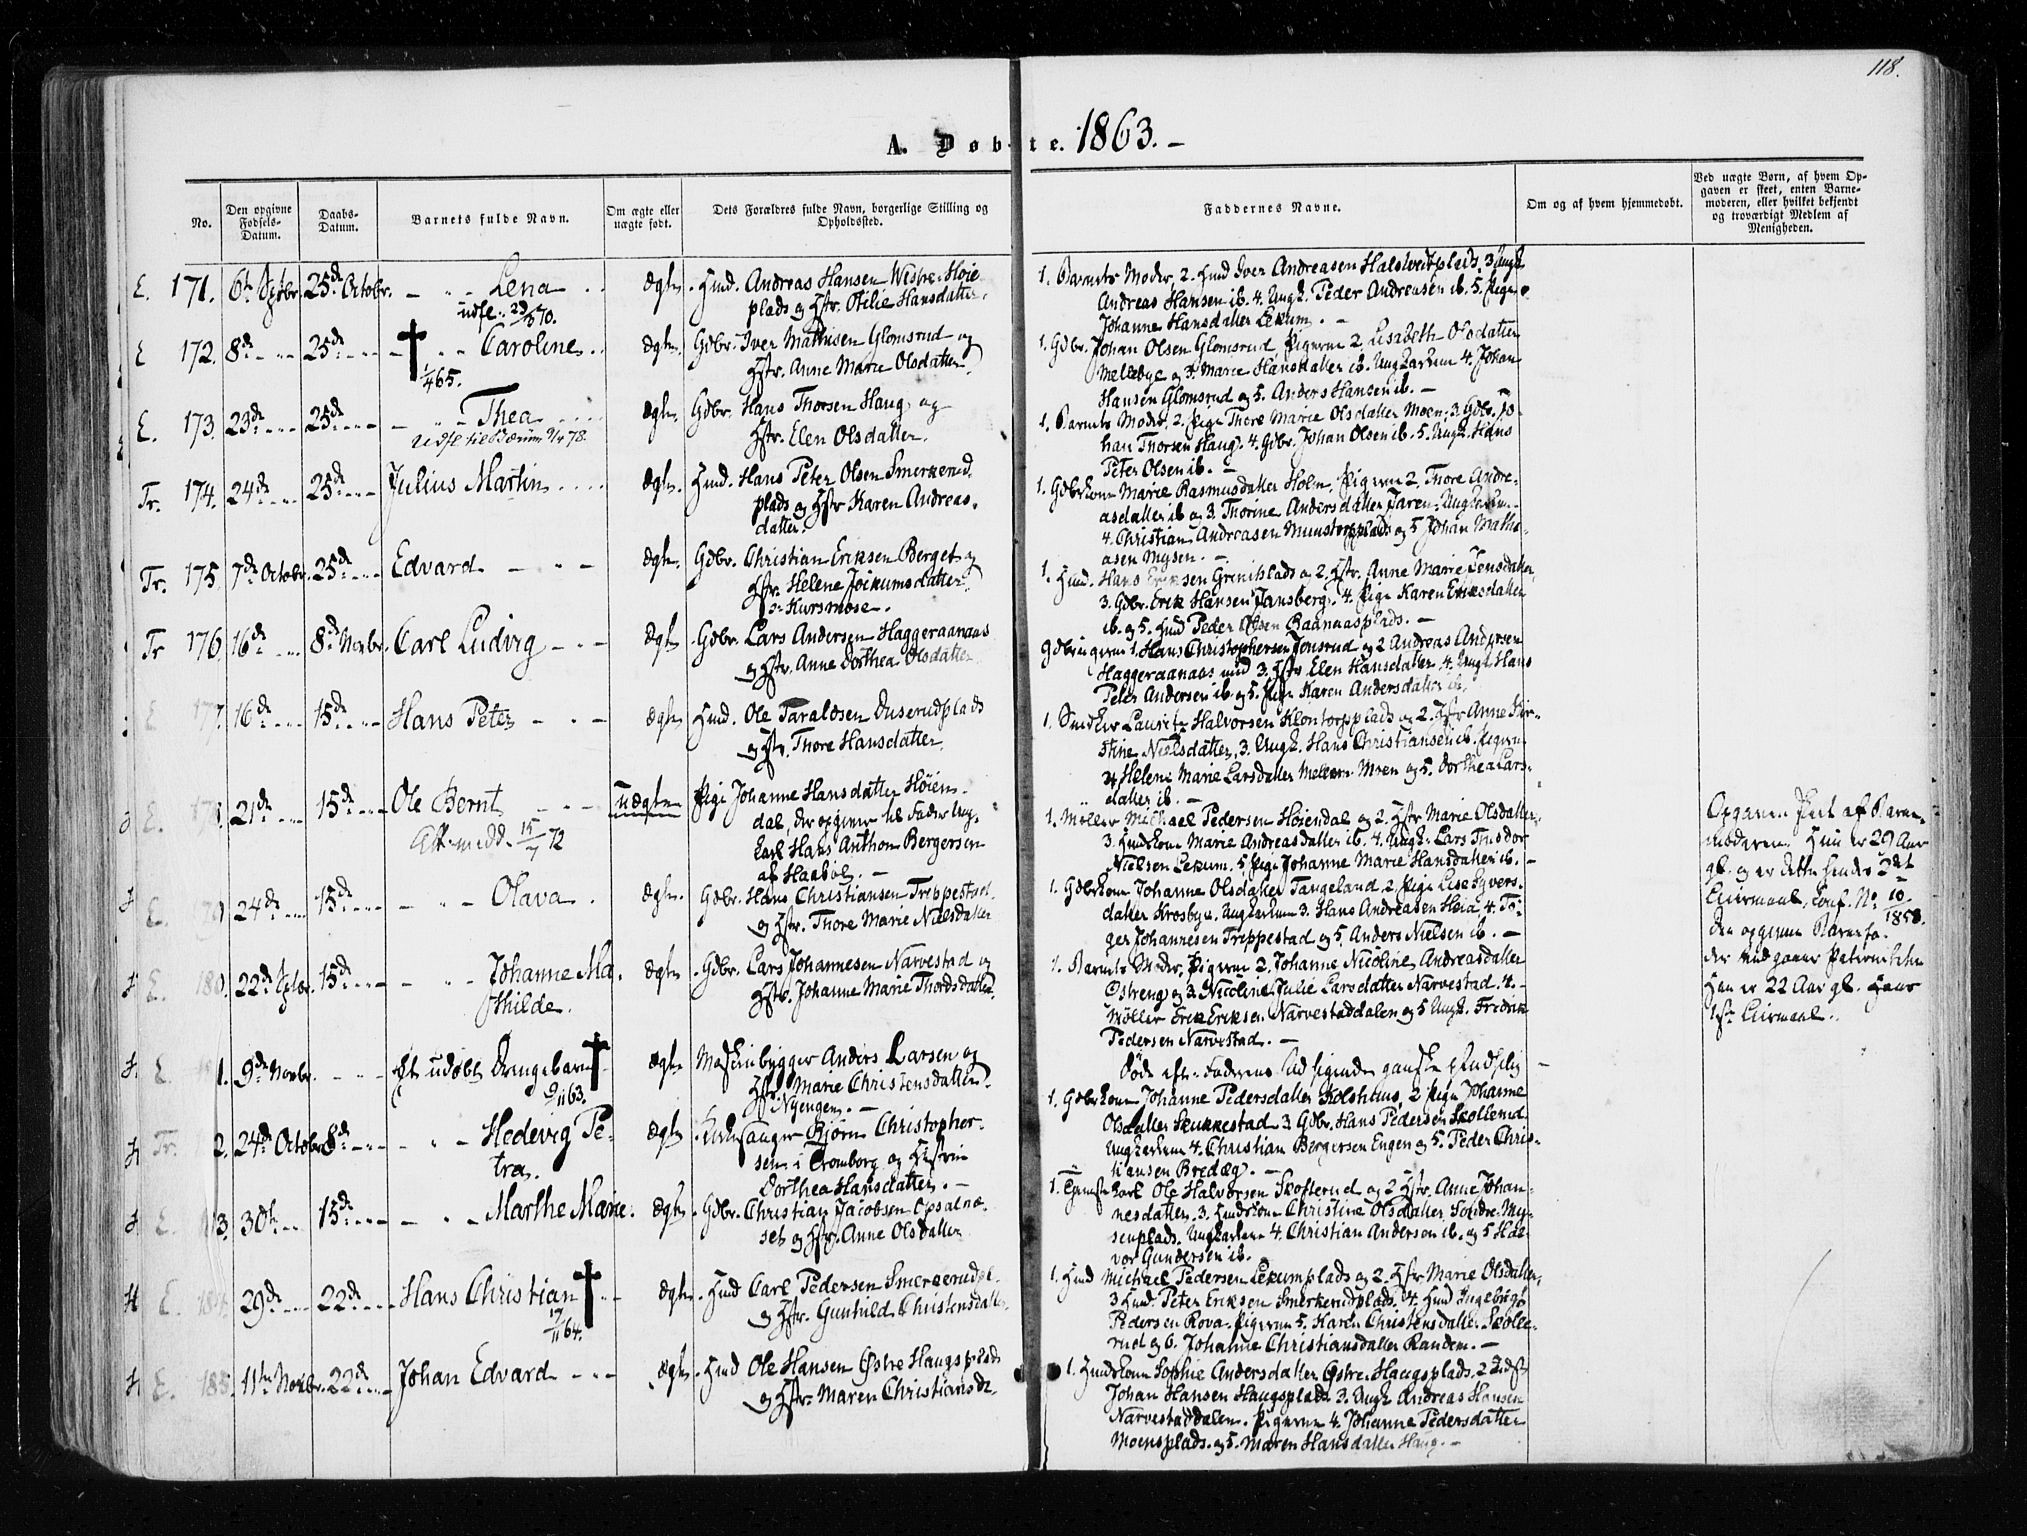 118.
A. Døbte. 1863. –
No.
Den opgivne Fødsels-Datum.
Daabs-Datum.
Barnets fulde Navn.
Om ægte eller uægte født.
Dets Forældres fulde Navn, borgerlige Stilling og Opholdssted.
Faddernes Navne.
Om og af hvem hjemmedøbt.
Ved uægte Børn, af hvem Opgaven er skeet, enten Barnemoderen, eller hvilket bekjendt og troværdigt Medlem af Menigheden.
E. 171. 25de Octobr. Lena Ægte. Husmd. Andreas Hansen
plads og Hstr. Otilie Hansdatter.
udfl. 23/3 70.
1. Barnets Moder, 2. Husmd Iver Andreasen Halstvedtplads, 3 Ungk.
Andreas Hansen ib. 4. Ungk. Peder Andreasen ib. 5. Pige
Johanne Hansdatter Lekum. –
E 172. 8de 25de Caroline Ægte. Gdbr. Iver Mathisen Glomsrud og
Hstr. Anne Marie Olsdatter.
1/4 65.
1. Gdbr. Johan Olsen Glomsrud, Pigerne 2 Lisabeth Olsdatter
Mellebye og 3. Marie Hansdatter ib. Ungkarlene 4. Johan
Hansen Glomsrud og 5. Anders Hansen ib. –
E. 173. 23de 25de Thea Ægte. Gdbr. Hans Thorsen Haug og
Hstr. Elen Olsdatter.
1. Barnets Moder, 2. Pige Thore Marie Olsdatter Moen, 3. Gdbr. Jo-
han Thorsen Haug. 4. Gdbr. Johan Olsen ib. 5. Ungk. Hans
Peter Olsen ib. –
Tr. 174. 24de 25de Julius Martin Ægte. Husmd. Hans Peter Olsen Smerkerud
plads og Hstr Karen Andreas-
datter.
1. Gdbrkone Marie Rasmusdatter Holm, Pigerne 2. Thore Andre-
asdatter ib og 3. Thorine Andersdatter Jaren, Ungkarlene
4. Christian Andreasen Munstorpplads og 5 Johan Mathi-
asen Mysen. –
Tr. 175. 7de Octobr. 25de Edvard Ægte. Gdbr. Christian Eriksen Berget og
Hstr. Helene Jockumsdatter
1. Husmd. Hans Eriksen Grenitsplads og 2. Hstr. Anne Marie Jensdatter,
3. Gdbr. Erik Hansen Jansberg. 4. Pige Karen Eriksdatter
ib. og 5. Husmd Peder Olsen Raanaasplads. –
Tr 176. 16de 8de Novbr. Carl Ludvig Ægte Gdbr. Lars Andersen Haggeraanaas
og Hstr. Anne Dorthea Olsdatter
Gdbrugerne 1. Hans Christophersen Jonsrud og 2 Andreas Andersen
Haggeraanaas med 3. Hstr. Elen Hansdatter. 4. Ungk Hans
Peter Andersen ib og 5. Pige Karen Andersdatter ib.
E 177. 16de 15de Hans Peter Ægte Husmd. Ole Taraldsen Duserudplads
og Hstr. Thore Hansdatter.
1. Snedker Lauritz Halvorsen Klontorpplads og 2. Hstr Anne Kir-
stine Nielsdatter, 3. Ungk. Hans Christiansen ib. Pigerne
4 Helene Marie Larsdatter Mellem Moen og 5. Dorthea Lars-
datter ib. –
E. 178. 21de 15de Ole Bernt Uægte Pige Johanne Hansdatter Høien-
dal, der opgiver til Fader Ung-
karl Hans Anthon Bergersen
af Haabøl. –
15/7 72
1. Møller Michael Pedersen Høiendal og 2. Hstr Marie Olsdatter,
3. Huskone Marie Andreasdatter ib. 4. Ungk: Lars Thisdor
Nielsen Lekum. 5. Pige Johanne Marie Hansdatter ib. –
Opgaven skeet af Barne-
moderen. Hun er 29 Aar
gl. og er dette hendes 2det
Leiermaal, conf. No. 10/1858.
Den opgivne Barnefa-
der
Han er 22 Aar gl. Hans
1ste Leiermaal.
E. 179. 24de 15de Olava Ægte. Gdbr. Hans Christiansen Treppestad
og Hstr. Thore Marie Nielsdatter
1. Gdbrkone Johanne Olsdatter Tangeland, 2 Pige Lise Syvers-
datter Krosbye, Ungkarlene 3. Hans Andreasen Høia, 4. To-
ger Johannesen Treppestad og 5. Anders Nielsen ib. –
E. 180. 22de 15de Johanne Ma-
thilde. Ægte Gdbr. Lars Johannesen Narvestad og
Hstr. Johanne Marie Thordsdatter.
1. Barnets Moder, Pigerne 2. Johanne Nicoline Andreasdatter
Østreng og 3. Nicoline Julie Larsdatter Narvestad. 4. –
Møller Erik Eriksen Narvestaddalen og 5 Ungk. Fredrik
Pedersen Narvestad. –
E. 1. 9de Novbr. Et udøbt Drengebarn Ægte Maskinbygger Anders Larsen og
Hstr. Marie Christensdatter
Nyengen. –
9/11 63.
Død efter Faderens Udsigende
Tr. 2. 24de Octobr 8de Hedevig Pe-
tra. Ægte Kirkesanger Bjørn Christopher-
sen i Tromborg og Hustru
Dorthea Hansdatter. –
1. Gdbrkone Johanne Pedersdatter Kolshuus, 2 Pige Johanne
Olsdatter Skukkestad 3 Gdbr. Hans Pedersen Skollerud
Ungkarlene 4. Christian Bergersen Engen og 5. Peder Chris-
tiansen Bredæg. –
E. 3. 30te 15de Marthe Marie. Ægte Gdbr. Christian Jacobsen Opsalnæ-
set og Hstr. Anne Olsdatter
karl Ole Halvorsen Skofterud og 2 Hstr. Anne Johan-
nesdatter. 3. Huskone Christine Olsdatter Søndre My-
senplads. Ungkarlene 4. Christian Andersen ib. og 5 Hal-
vor Gundersen ib.
E. 184. 29de 22de Hans Christian Ægte Husmd Carl Pedersen
og Hstr. Gunhild Christensdatter
17/11 64.
1. Husmd Michael Pedersen Lekumplads og 2. Hstr Marie Olsdatter,
3 Husmd. Peter Eriksen Smerkerudplads. 4. Husmd Ingebrigt
Pedersen Rova. Pigerne 5. Karen Christensdatter Skolle-
rud og 6. Johanne Christiansdatter Randem. –
E. 185. 11te Novbr. 22de Johan Edvard Ægte Husmd Ole Hansen Østre Haugsplads
og Hstr. Maren Christiansdr.
1. Huskone Sophie Andersdatter Østre Haugsplads. 2
Johan Hansen Haugsplads 3. Ungk Andreas Hansen
Narvestaddalen. Pigerne 4. Johanne Pedersdatter
Moensplads og 5. Maren Hansdatter Haug. –